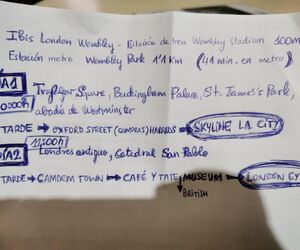 Ibis London Wembley - Estación de tren Wembley Stadium 100m
Estación metro Wembley Park 1'1 Km (41 min. en metro)
DÍA1 Trafalgar Square, Buckingham Palace, St. James's Park,
10:00h abadía de Westminster
TARDE → OXFORD STREET (COMPRAS) HARRODS → SKYLINE LA CITY
11:00h
DÍA2 Londres antiguo, Catedral San Pablo
TARDE → CAMDEM TOWN → CAFÉ Y TATE MUSEUM → LONDON EY
BRITISH